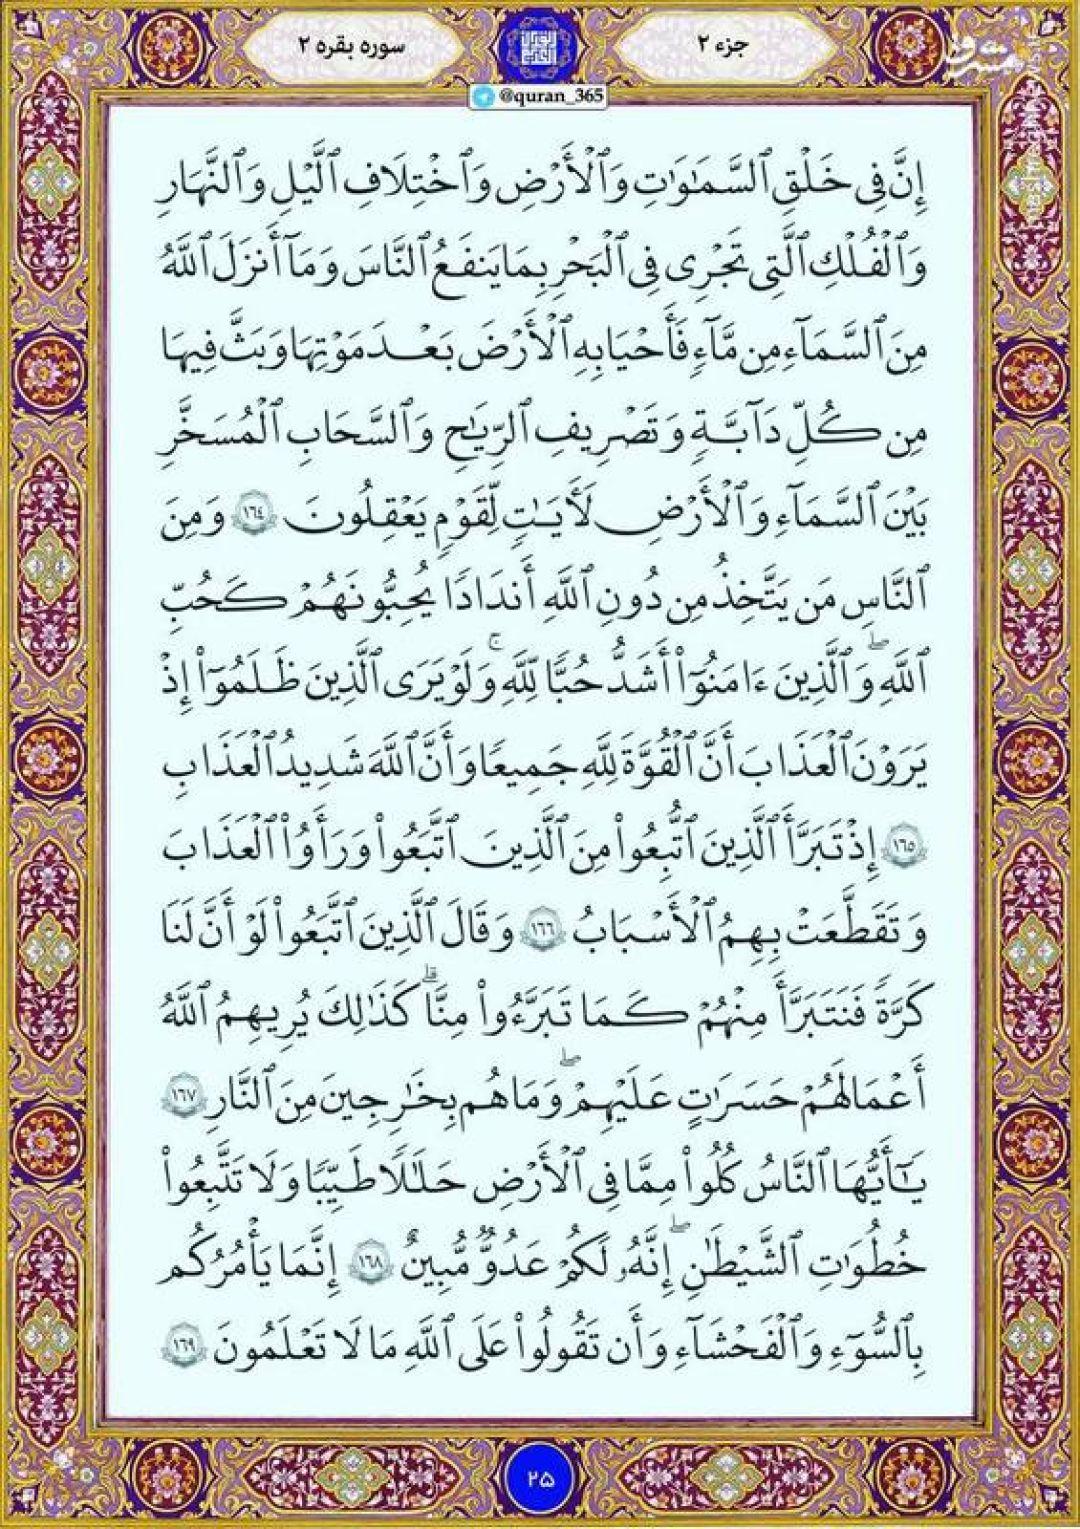 جزء ۲
سوره بقره ۲
@quran_365
إِنَّ فِى خَلْقِ ٱلسَّمَـٰوَٰتِ وَٱلْأَرْضِ وَٱخْتِلَـٰفِ ٱلَّيْلِ وَٱلنَّهَارِ
وَٱلْفُلْكِ ٱلَّتِى تَجْرِى فِى ٱلْبَحْرِ بِمَا يَنفَعُ ٱلنَّاسَ وَمَآ أَنزَلَ ٱللَّهُ
مِنَ ٱلسَّمَآءِ مِن مَّآءٍ فَأَحْيَا بِهِ ٱلْأَرْضَ بَعْدَ مَوْتِهَا وَبَثَّ فِيهَا
مِن كُلِّ دَآبَّةٍ وَتَصْرِيفِ ٱلرِّيَـٰحِ وَٱلسَّحَابِ ٱلْمُسَخَّرِ
بَيْنَ ٱلسَّمَآءِ وَٱلْأَرْضِ لَأَيَـٰتٍ لِّقَوْمٍ يَعْقِلُونَ ١٦٤ وَمِنَ
ٱلنَّاسِ مَن يَتَّخِذُ مِن دُونِ ٱللَّهِ أَندَادًا يُحِبُّونَهُمْ كَحُبِّ
ٱللَّهِ ۖ وَٱلَّذِينَ ءَامَنُوٓا۟ أَشَدُّ حُبًّا لِّلَّهِ ۚ وَلَوْ يَرَى ٱلَّذِينَ ظَلَمُوٓا۟ إِذْ
يَرَوْنَ ٱلْعَذَابَ أَنَّ ٱلْقُوَّةَ لِلَّهِ جَمِيعًا وَأَنَّ ٱللَّهَ شَدِيدُ ٱلْعَذَابِ
١٦٥ إِذْ تَبَرَّأَ ٱلَّذِينَ ٱتُّبِعُوا۟ مِنَ ٱلَّذِينَ ٱتَّبَعُوا۟ وَرَأَوُا۟ ٱلْعَذَابَ
وَتَقَطَّعَتْ بِهِمُ ٱلْأَسْبَابُ ١٦٦ وَقَالَ ٱلَّذِينَ ٱتَّبَعُوا۟ لَوْ أَنَّ لَنَا
كَرَّةً فَنَتَبَرَّأَ مِنْهُمْ كَمَا تَبَرَّءُوا۟ مِنَّا ۗ كَذَٰلِكَ يُرِيهِمُ ٱللَّهُ
أَعْمَـٰلَهُمْ حَسَرَٰتٍ عَلَيْهِمْ ۖ وَمَا هُم بِخَـٰرِجِينَ مِنَ ٱلنَّارِ ١٦٧
يَـٰٓأَيُّهَا ٱلنَّاسُ كُلُوا۟ مِمَّا فِى ٱلْأَرْضِ حَلَـٰلًا طَيِّبًا وَلَا تَتَّبِعُوا۟
خُطُوَٰتِ ٱلشَّيْطَـٰنِ ۚ إِنَّهُۥ لَكُمْ عَدُوٌّ مُّبِينٌ ١٦٨ إِنَّمَا يَأْمُرُكُم
بِٱلسُّوٓءِ وَٱلْفَحْشَآءِ وَأَن تَقُولُوا۟ عَلَى ٱللَّهِ مَا لَا تَعْلَمُونَ ١٦٩
۲۵